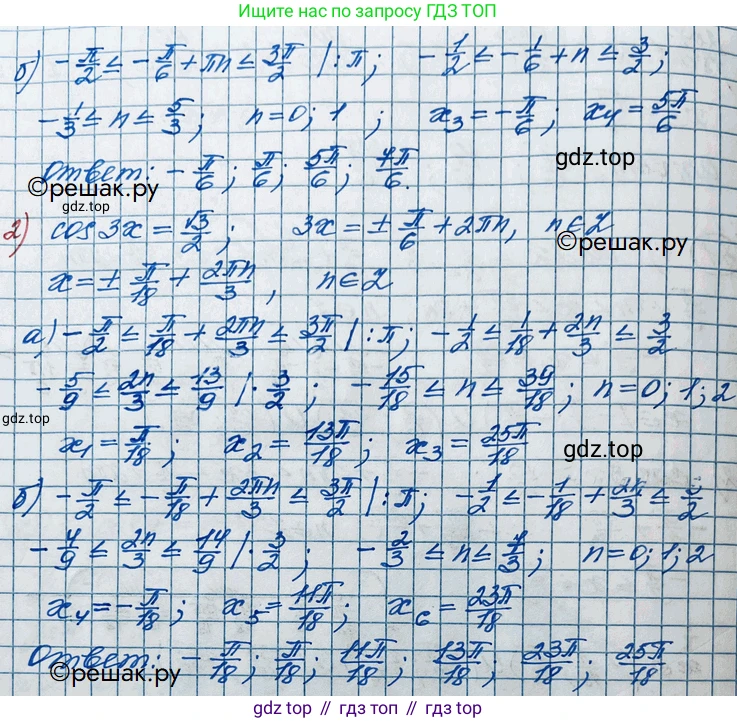 Ищите нас по запросу ГДЗ ТОП
б) -π/2 ≤ -π/6 + πn ≤ 3π/2 |:π; -1/2 ≤ -1/6 + n ≤ 3/2;
-1/3 ≤ n ≤ 5/3; n=0; 1 ; x₃ = -π/6; x₄ = 5π/6
gdz.top
Ответ: -π/6; π/6; 5π/6; 7π/6.
©решак.ру
gdz.top
2) cos 3x = √3/2; 3x = ± π/6 + 2πn, n∈Z
©решак.ру
x = ± π/18 + 2πn/3, n∈Z
а) -π/2 ≤ π/18 + 2πn/3 ≤ 3π/2 |:π; -1/2 ≤ 1/18 + 2n/3 ≤ 3/2
-5/9 ≤ 2n/3 ≤ 13/9 |· 3/2; -15/18 ≤ n ≤ 39/18; n=0; 1; 2
gdz.top
x₁ = π/18; x₂ = 13π/18; x₃ = 25π/18
gdz.top
б) -π/2 ≤ -π/18 + 2πn/3 ≤ 3π/2 |:π; -1/2 ≤ -1/18 + 2n/3 ≤ 3/2
-4/9 ≤ 2n/3 ≤ 14/9 |· 3/2; -2/3 ≤ n ≤ 7/3; n=0; 1; 2
x₄ = -π/18; x₅ = 11π/18; x₆ = 23π/18
Ответ: -π/18; π/18; 11π/18; 13π/18; 23π/18; 25π/18
gdz.top // гдз.топ // гдз топ